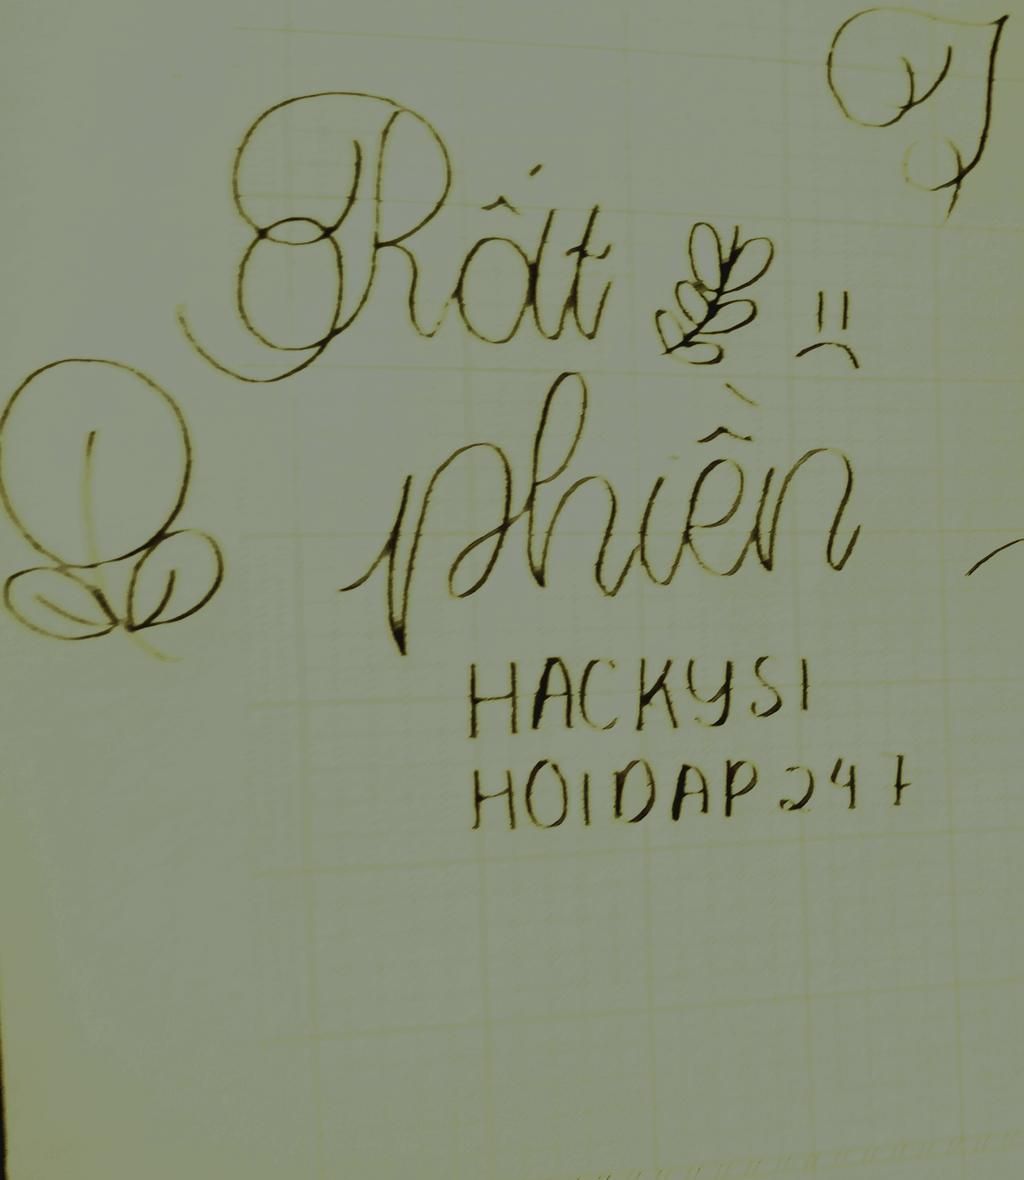 Rất
phiền
HACKYSI
HOIDAP247